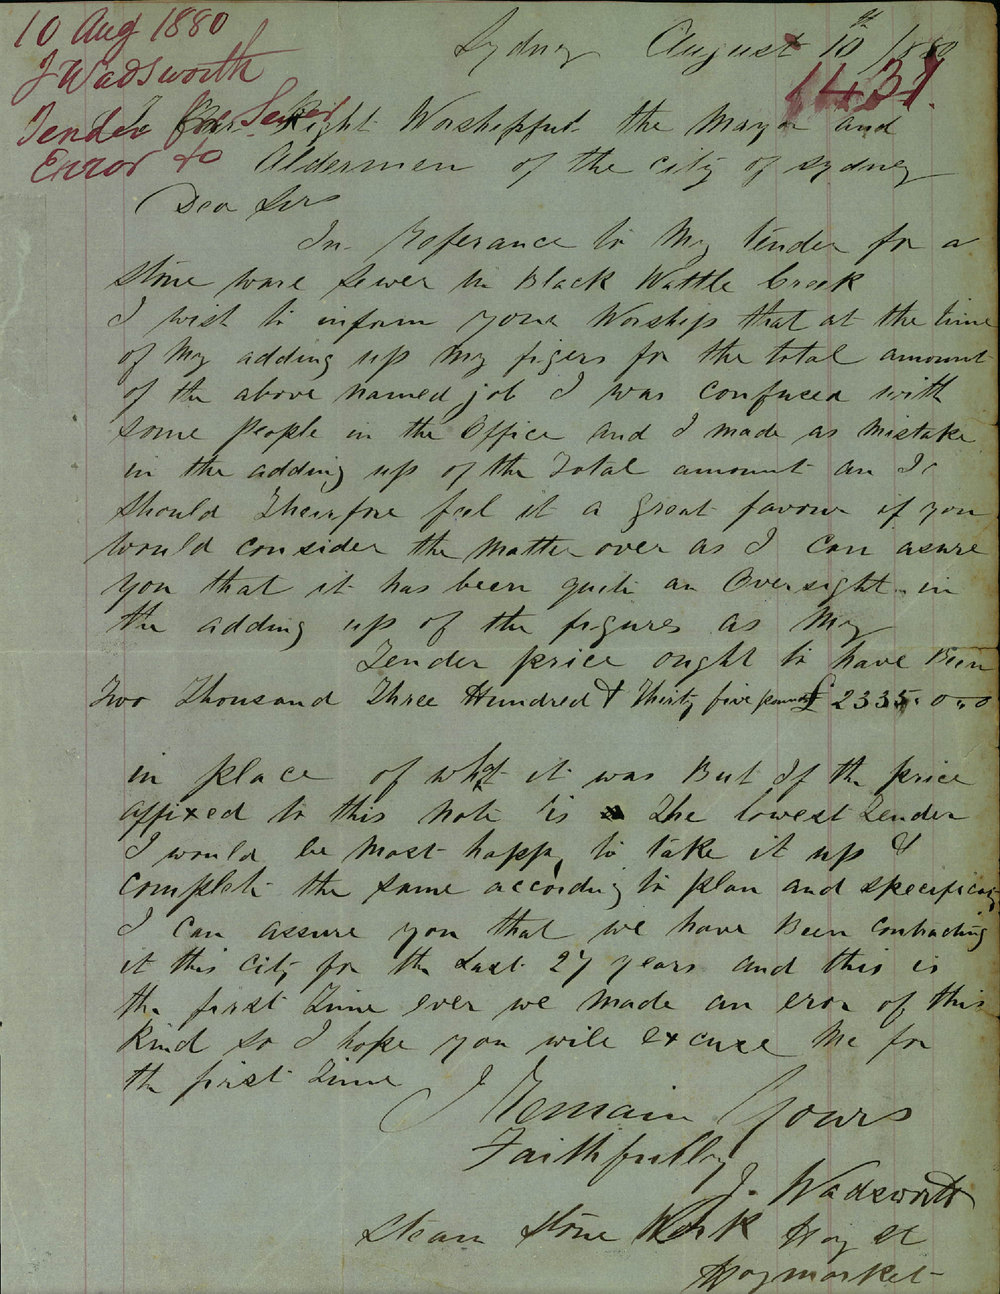 10 Aug 1880
J Wadsworth
Tender for Sewer
Error to
Sydney August 10th 1880
1431.
Right Worshipful the Mayor and
Aldermen of the city of Sydney
Dear Sirs
In Referance to My tender for a
stone ware sewer in Black Wattle Creek
I wish to inform your Worship that at the time
of My adding up my figers for the total amount
of the above named job I was confused with
some people in the Office and I made as mistake
in the adding up of the Total amount an I
should Theirfore feel it a great favour if you
would consider the matter over as I can asure
you that it has been quite an Oversight in
the adding up of the figures as My
Tender price ought to have Been
Two Thousand Three Hundred & Thirty five pounds £2335.0.0
in place of what it was But If the price
affixed to this note is The lowest Tender
I would be most happy to take it up &
complete the same according to plan and specification
I can assure you that we have Been contracting
it this city for the Last 27 years and this is
the first Time ever we made an eror of this
Kind so I hope you will excuse Me for
the first Time
I Remain Yours
Faithfully
J. Wadsworth
Steam Stone Work Hay St
Haymarket